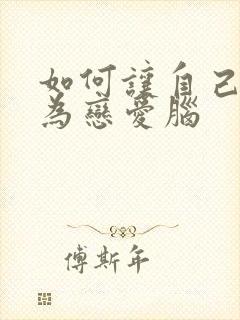 如何讓自己
為戀愛腦
傅斯年